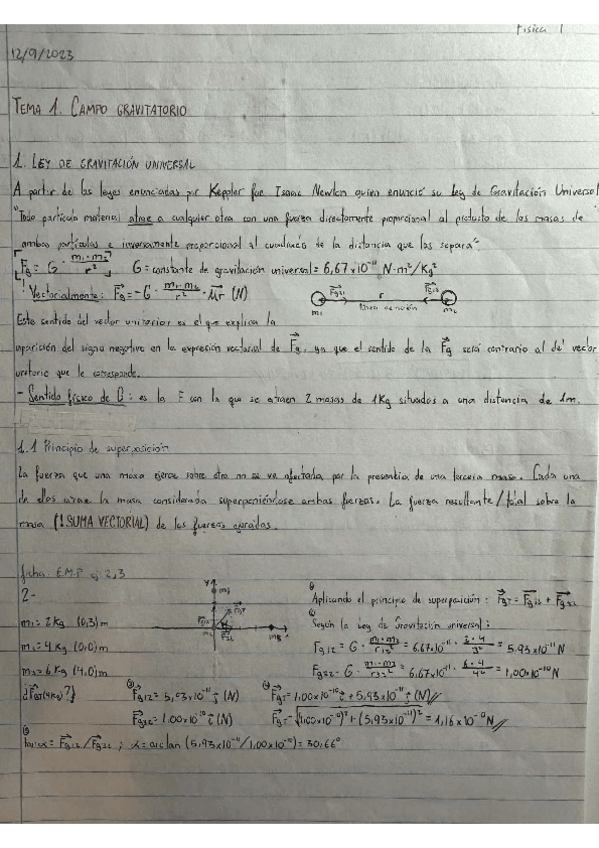 Física 1
12/9/2023
TEMA 1. CAMPO GRAVITATORIO
1. LEY DE GRAVITACIÓN UNIVERSAL
A partir de las leyes enunciadas por Keppler fue Isaac Newton quien enunció su Ley de Gravitación Universal
"Toda partícula material atrae a cualquier otra con una fuerza directamente proporcional al producto de las masas de
ambas partículas e inversamente proporcional al cuadrado de la distancia que los separa".
Fg = G · m₁·m₂/r² G = constante de gravitación universal = 6,67x10⁻¹¹ N·m²/Kg²
! Vectorialmente: Fg = -G · m₁·m₂/r² · ur (N)
Fg21 r Fg12
m₁ línea de acción m₂
Este sentido del vector unitario es el que explica la
aparición del signo negativo en la expresión vectorial de Fg, ya que el sentido de la Fg será contrario al del vector
unitario que le corresponde.
- Sentido físico de G: es la F con la que se atraen 2 masas de 1Kg situadas a una distancia de 1m.
1.1 Principio de superposición
La fuerza que una masa ejerce sobre otra no se ve afectada por la presencia de una tercera masa. Cada una
de ellas atrae la masa considerada superponiéndose ambas fuerzas. La fuerza resultante/total sobre la
masa (!SUMA VECTORIAL) de las fuerzas ejercidas.
ficha: E.M.P ej: 2,3
2-
m₁ = 2Kg (0,3)m
m₂ = 4Kg (0,0)m
m₃ = 6Kg (4,0)m
¿FgT(4Kg)?
Aplicando el principio de superposición: FgT = Fg12 + Fg32
Según la Ley de Gravitación universal:
Fg12 = G · m₁·m₂/r12² = 6,67x10⁻¹¹ · 2·4/3² = 5,93x10⁻¹¹ N
Fg32 = G · = 6,67x10⁻¹¹ · 6·4/4² = 1,00x10⁻¹⁰ N
Fg12 = 5,93x10⁻¹¹ j (N)
Fg32 = 1,00x10⁻¹⁰ i (N)
FgT = 1,00x10⁻¹⁰ i + 5,93x10⁻¹¹ j (N)
FgT = √(1,00x10⁻¹⁰)² + (5,93x10⁻¹¹)² = 1,16x10⁻¹⁰ N
tan α = Fg12/Fg32 ; α = arctan (5,93x10⁻¹¹/1,00x10⁻¹⁰) = 30,66°